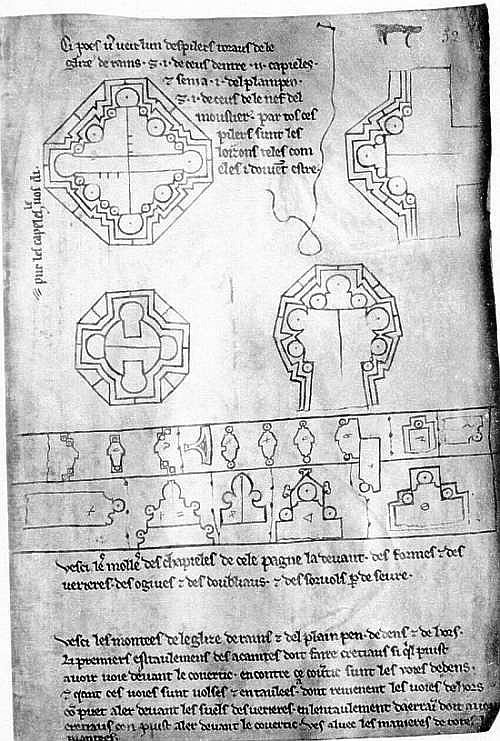 Ci poes vˢ veir lun des pilers toraus de le
glize de rains · ⁊ · i · de ceus dentre · ii · capieles ·
⁊ sen i a · i · del plain pen ·
⁊ · i · de ceus de le nef del
moustier · par tos ces
pilers sunt les
loizons teles com
eles i doivēt estre ·
32
les capeles
Vesci les molles des chapieles de cele pagne la devant · des formes ⁊ des
verieres · des ogives ⁊ des doubliaus · ⁊ des sorvols p̄ deseure ·
Vesci les montees de le glize de rains ⁊ del plain pen · dedens ⁊ de hors ·
Li premiers estaulemens des acaintes doit faire cretiaus si qil puist
avoir voie devant le covertic · encontre ce covertic sunt les voies dedens ·
⁊ qant ces voies sunt volses ⁊ entaulees · dont revienent les voies de hors
cō puet aler devant les suels des verieres · en lentaulement daerrai͞ doit avoir
cretiaus con puist aler devant le covertic · ves aluec les manieres de totes les
montees ·